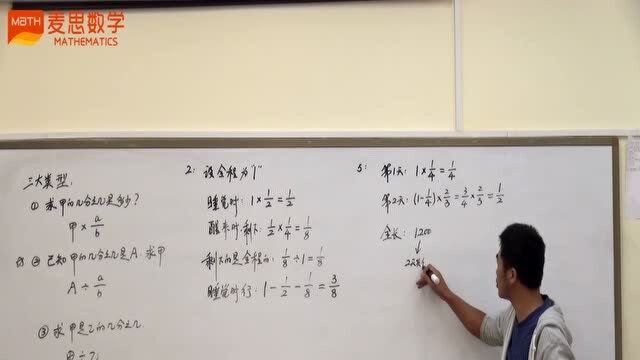 MATH 麦思数学
MATHEMATICS
三大类型:
① 求甲的几分之几是多少?
甲 × a/b
☆ ② 已知甲的几分之几是A 求甲
A ÷ a/b
③ 求甲是乙的几分之几
甲 ÷ 乙
2: 设全程为"1"
睡觉时: 1 × 1/2 = 1/2
醒来时剩下: 1/2 × 1/4 = 1/8
剩下的是全程的: 1/8 ÷ 1 = 1/8
睡觉时行: 1 - 1/2 - 1/8 = 3/8
5: 第1天: 1 × 1/4 = 1/4
第2天: (1 - 1/4) × 2/3 = 3/4 × 2/3 = 1/2
全长: 1200
↓